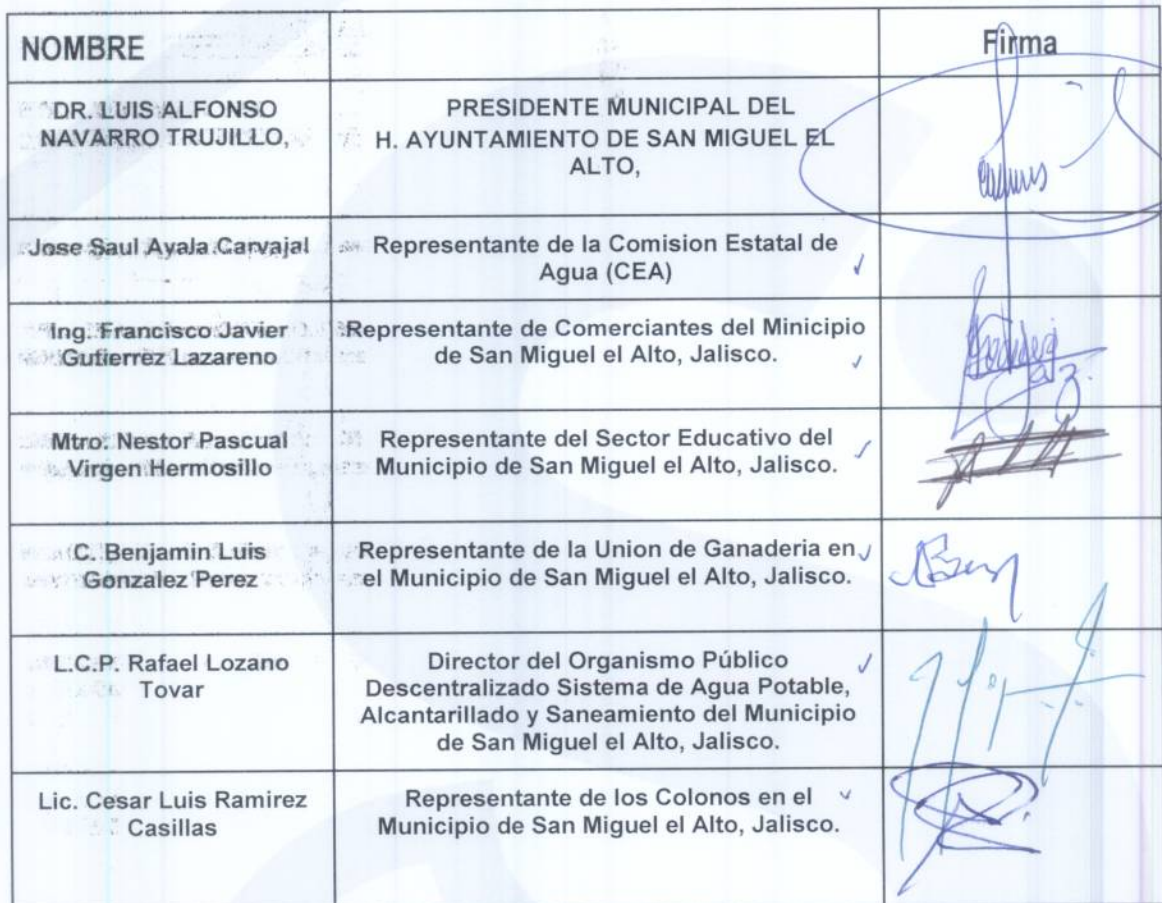 NOMBRE
Firma
DR. LUIS ALFONSO
NAVARRO TRUJILLO,
PRESIDENTE MUNICIPAL DEL
H. AYUNTAMIENTO DE SAN MIGUEL EL
ALTO,
Jose Saul Ayala Carvajal
Representante de la Comision Estatal de
Agua (CEA)
Ing. Francisco Javier
Gutierrez Lazareno
Representante de Comerciantes del Minicipio
de San Miguel el Alto, Jalisco.
Mtro. Nestor Pascual
Virgen Hermosillo
Representante del Sector Educativo del
Municipio de San Miguel el Alto, Jalisco.
C. Benjamin Luis
Gonzalez Perez
Representante de la Union de Ganaderia en
el Municipio de San Miguel el Alto, Jalisco.
L.C.P. Rafael Lozano
Tovar
Director del Organismo Público
Descentralizado Sistema de Agua Potable,
Alcantarillado y Saneamiento del Municipio
de San Miguel el Alto, Jalisco.
Lic. Cesar Luis Ramirez
Casillas
Representante de los Colonos en el
Municipio de San Miguel el Alto, Jalisco.